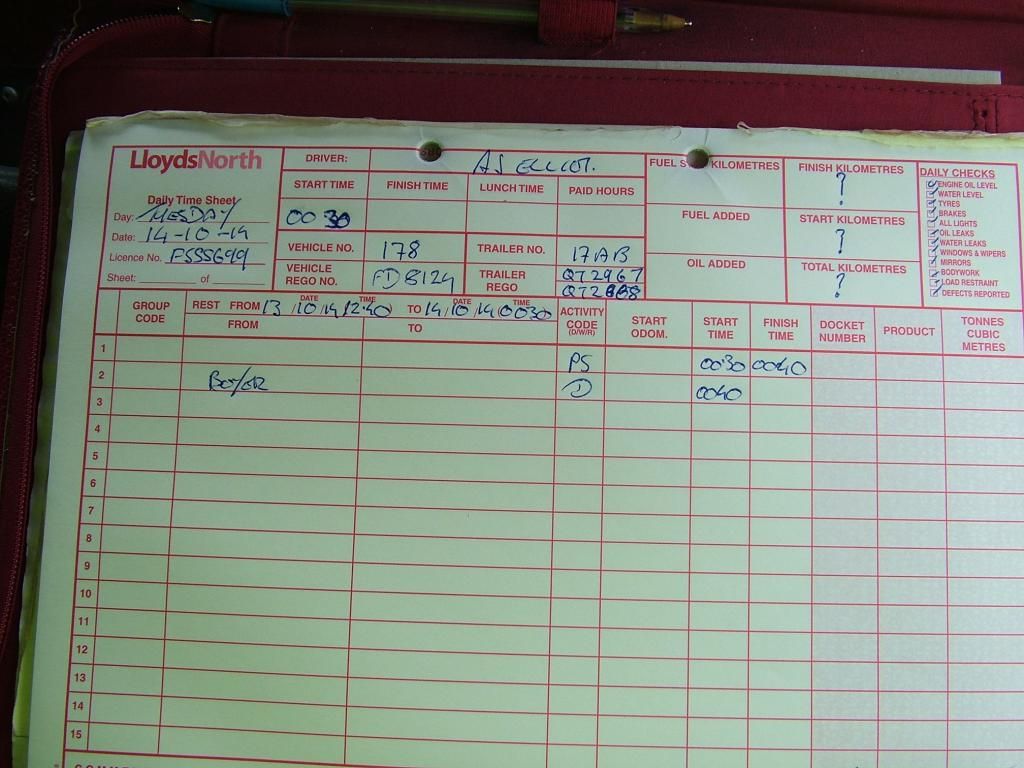 LloydsNorth
Daily Time Sheet
Day: TUESDAY
Date: 14-10-14
Licence No.
Sheet: of
DRIVER: AJ ELLIOT.
START TIME FINISH TIME LUNCH TIME PAID HOURS
0030
VEHICLE NO. 178 TRAILER NO. 17AB
VEHICLE REGO NO. FD8124 TRAILER REGO QT2967
QT2888
FUEL KILOMETRES
FUEL ADDED
OIL ADDED
FINISH KILOMETRES
?
START KILOMETRES
?
TOTAL KILOMETRES
?
DAILY CHECKS
ENGINE OIL LEVEL
WATER LEVEL
TYRES
BRAKES
ALL LIGHTS
OIL LEAKS
WATER LEAKS
WINDOWS & WIPERS
MIRRORS
BODYWORK
LOAD RESTRAINT
DEFECTS REPORTED
GROUP CODE
REST FROM 13/10/14 DATE 12:40 TIME TO 14/10/14 DATE 0030 TIME
FROM TO
ACTIVITY CODE (D/W/R)
START ODOM.
START TIME
FINISH TIME
DOCKET NUMBER
PRODUCT
TONNES CUBIC METRES
1 PS 0030 0040
2 D 0040
3
4
5
6
7
8
9
10
11
12
13
14
15